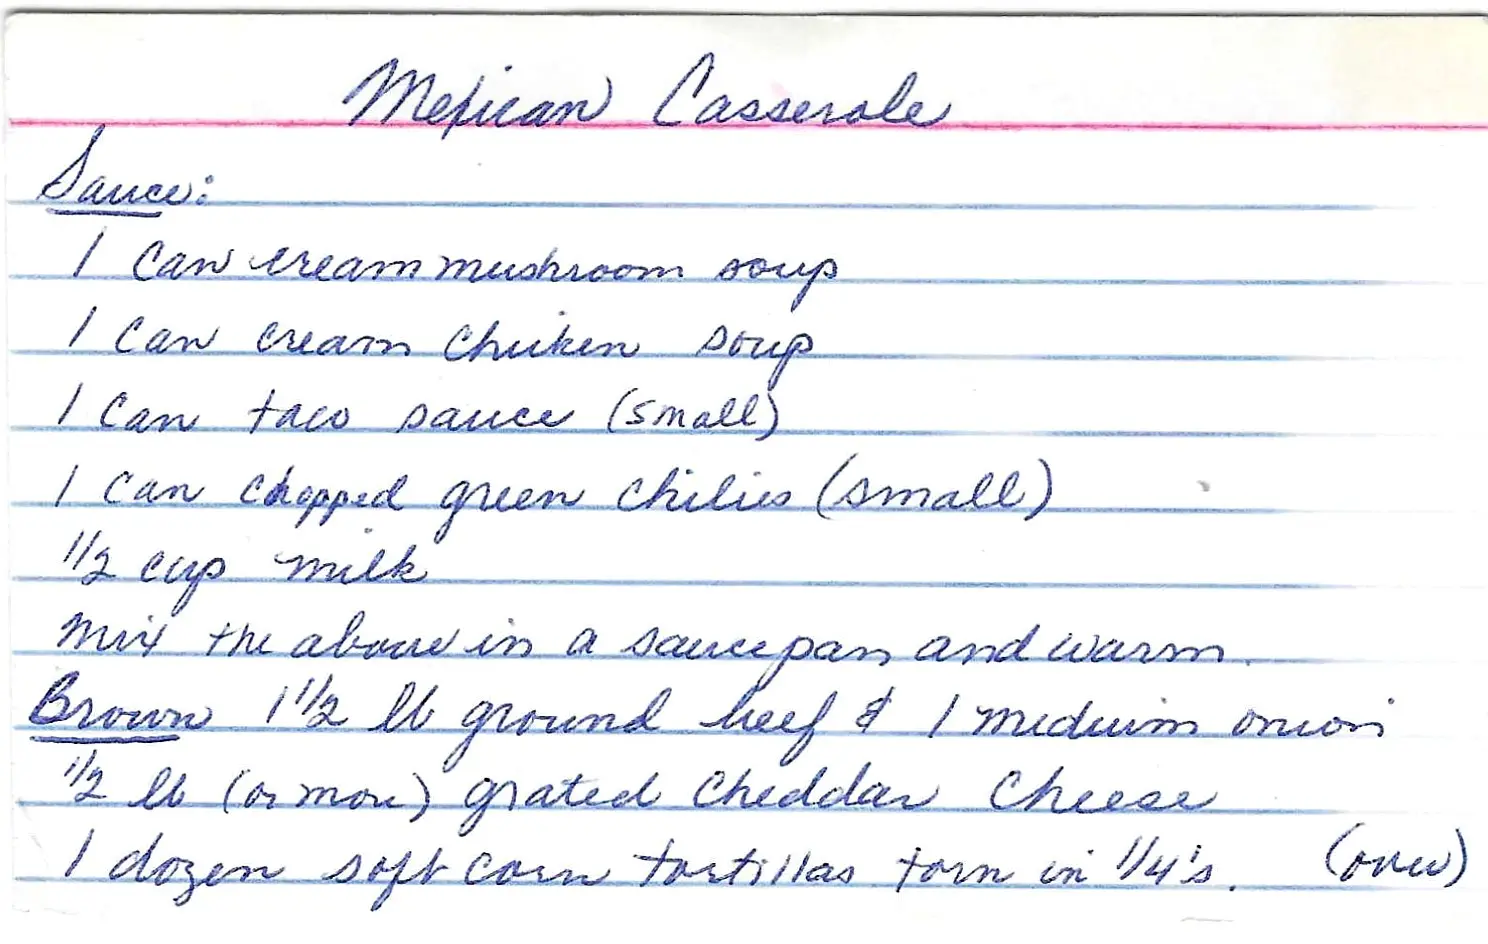 Mexican Casserole
Sauce:
1 can cream mushroom soup
1 can cream chicken soup
1 can taco sauce (small)
1 can chopped green chilies (small)
1/2 cup milk
Mix the above in a saucepan and warm.
Brown 1 1/2 lb ground beef & 1 medium onion
1/2 lb (or more) grated cheddar cheese
1 dozen soft corn tortillas torn in 1/4's. (over)